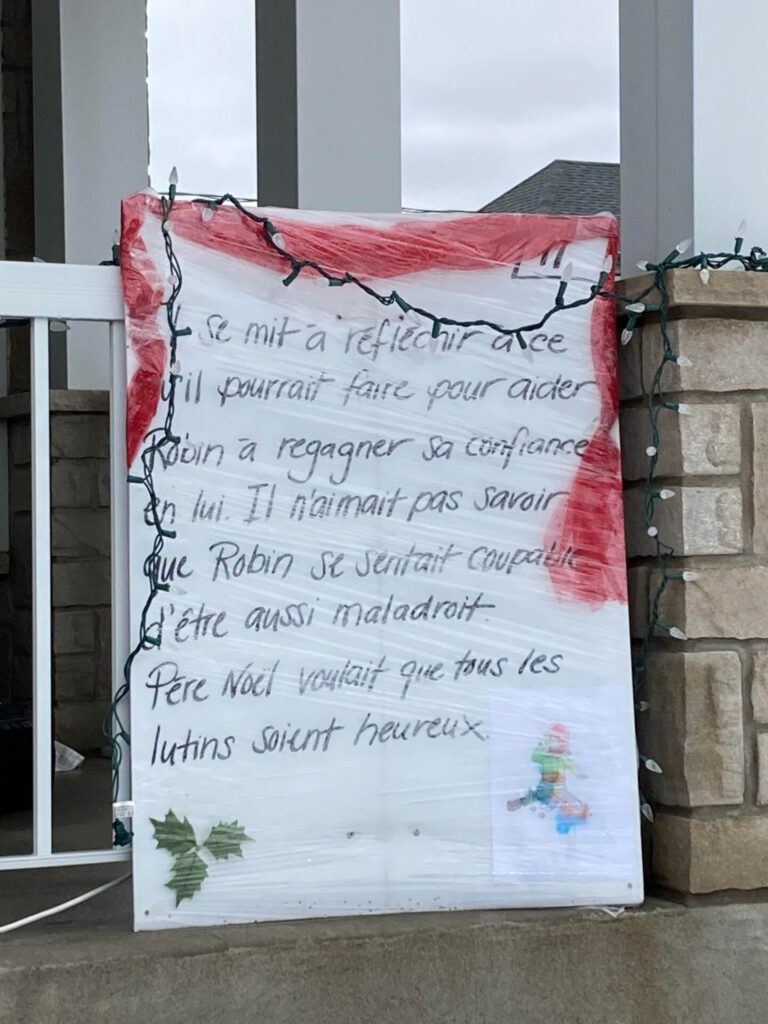 11
Il se mit à réfléchir à ce
qu'il pourrait faire pour aider
Robin à regagner sa confiance
en lui. Il n'aimait pas savoir
que Robin se sentait coupable
d'être aussi maladroit.
Père Noël voulait que tous les
lutins soient heureux.